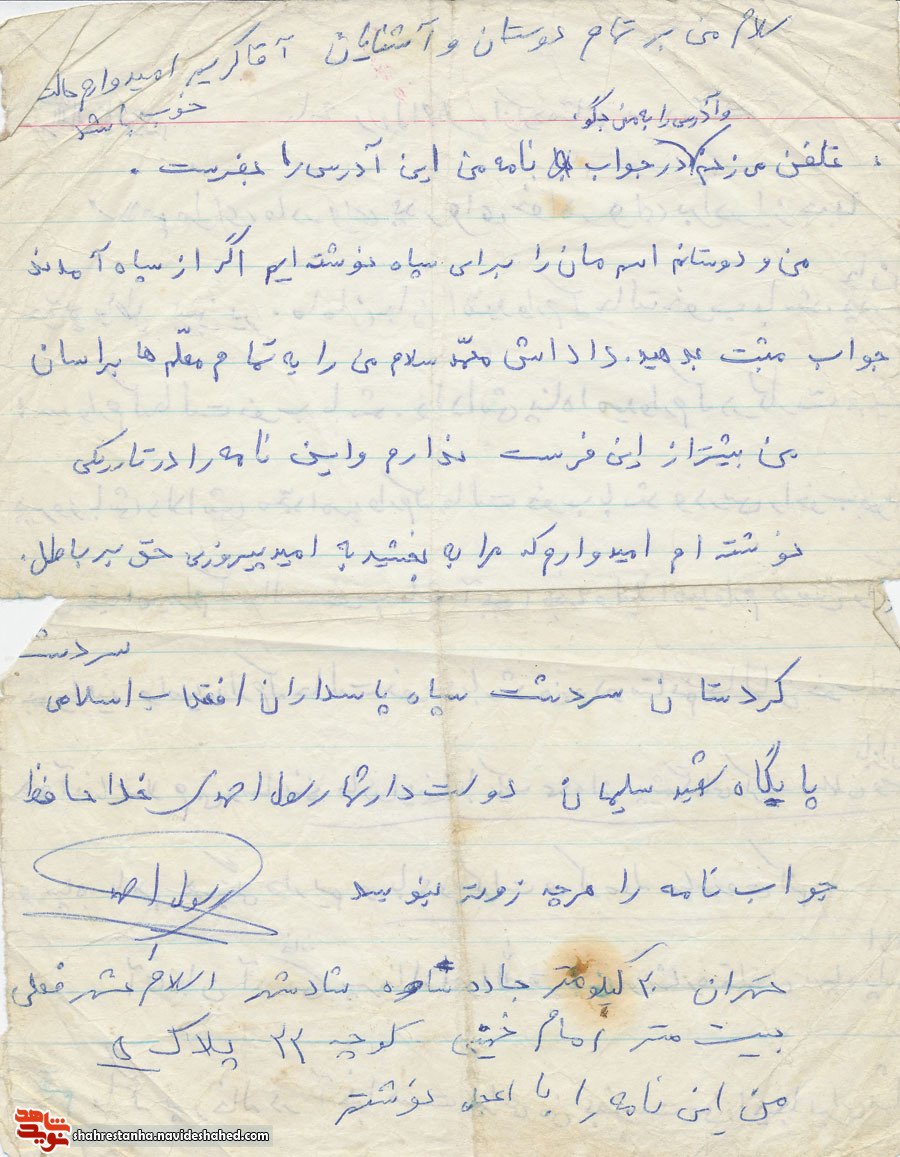 سلام من بر تمام دوستان و آشنایان آقا کریم امیدوارم حالت
خوب باشد
و آدرس را به من بگو
تلفن می زنم در جواب نامه من این آدرس را بفرست .
من و دوستانم اسم مان را برای سپاه نوشته ایم اگر از سپاه آمدند
جواب مثبت بدهید. داداش محمد سلام من را به تمام معلم ها براسان
من بیشتر از این فرست ندارم و این نامه را در تارریکی
نوشته ام امیدوارم که مرا به بخشید به امید پیروزی حق بر باطل.
سردشت
کردستان سردشت سپاه پاسداران انقلاب اسلامی
پایگاه شهید سلیمان دوست دار شما رسول احمدی خدا حافظ
جواب نامه را هرچه زودتر بنویسید
رسول احمد
تهران ۳۰ کیلومتر جاده ساوه شادشهر اسلام شهر فعلی
بیست متر امام خمینی کوچه ۲۲ پلاک
من این نامه را با عجله نوشتم
شاهد
نوید
shahrestanha.navideshahed.com